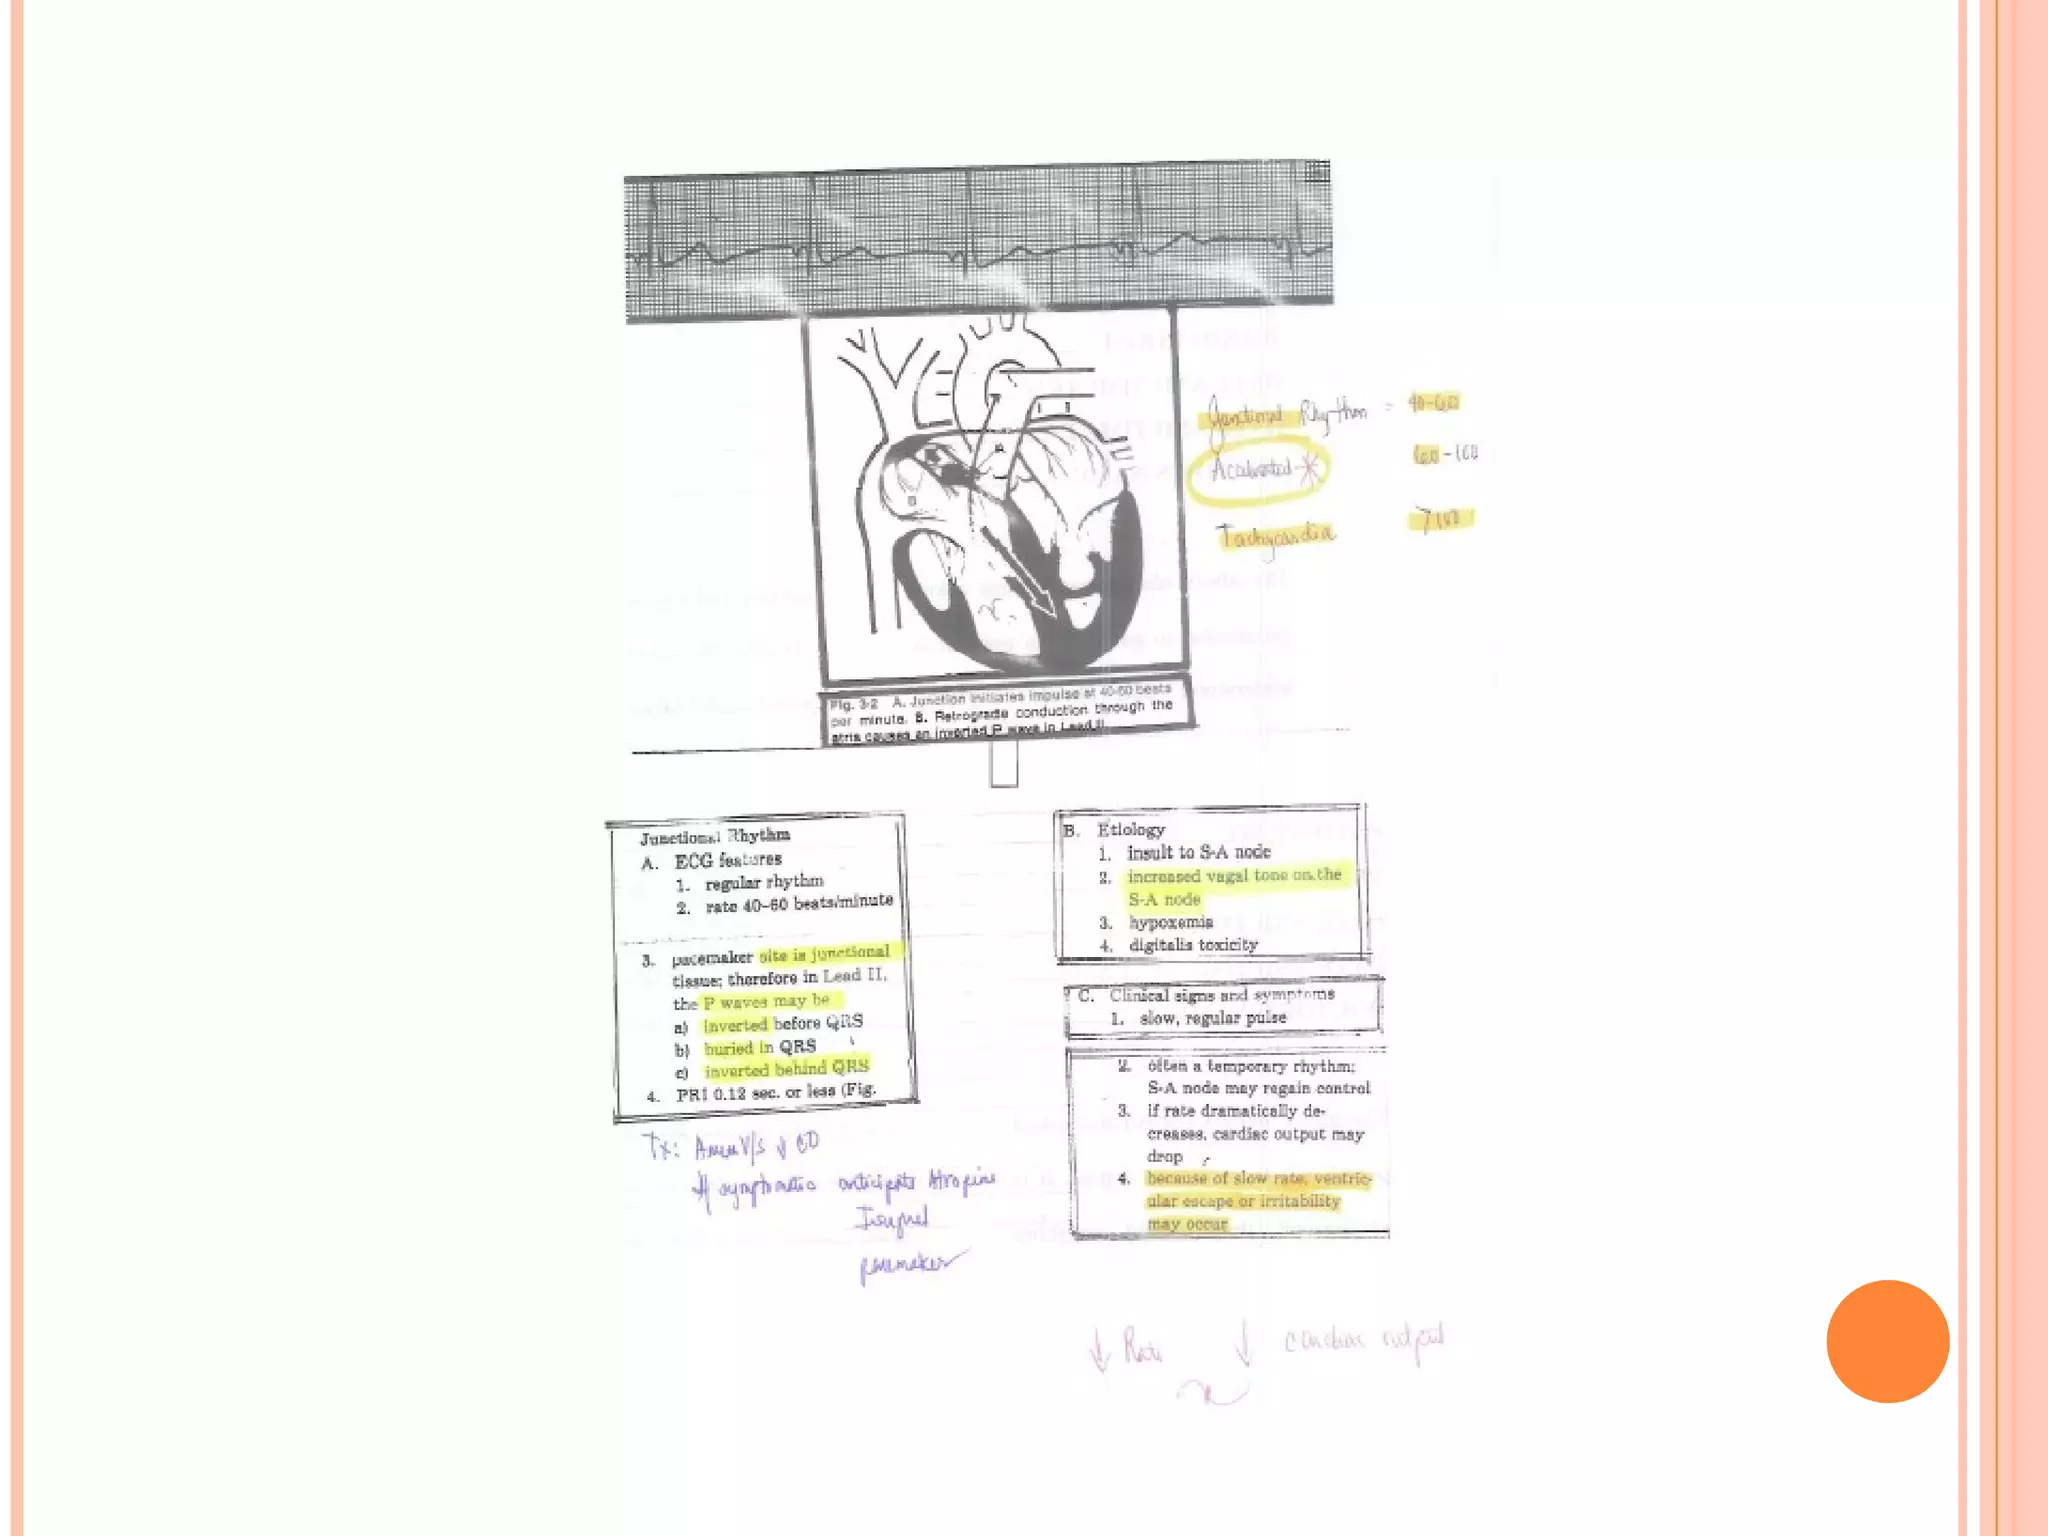 Junctional Rhythm = 40-60
Accelerated * 60-100
Tachycardia >100
A
B
Fig. 3-2 A. Junction initiates impulse at 40-60 beats
per minute. B. Retrograde conduction through the
atria causes an inverted P wave in Lead II.
Junctional Rhythm
A. ECG features
1. regular rhythm
2. rate 40-60 beats/minute
3. pacemaker site is junctional
tissue; therefore in Lead II,
the P waves may be
a) inverted before QRS
b) buried in QRS
c) inverted behind QRS
4. PRI 0.12 sec. or less (Fig.
Tx: V/S ↓ CO
If symptomatic anticipate Atropine
Isuprel
pacemaker
B. Etiology
1. insult to S-A node
2. increased vagal tone on the
S-A node
3. hypoxemia
4. digitalis toxicity
C. Clinical signs and symptoms
1. slow, regular pulse
2. often a temporary rhythm;
S-A node may regain control
3. if rate dramatically de-
creases, cardiac output may
drop
4. because of slow rate, ventric-
ular escape or irritability
may occur
↓ Rate ↓ cardiac output